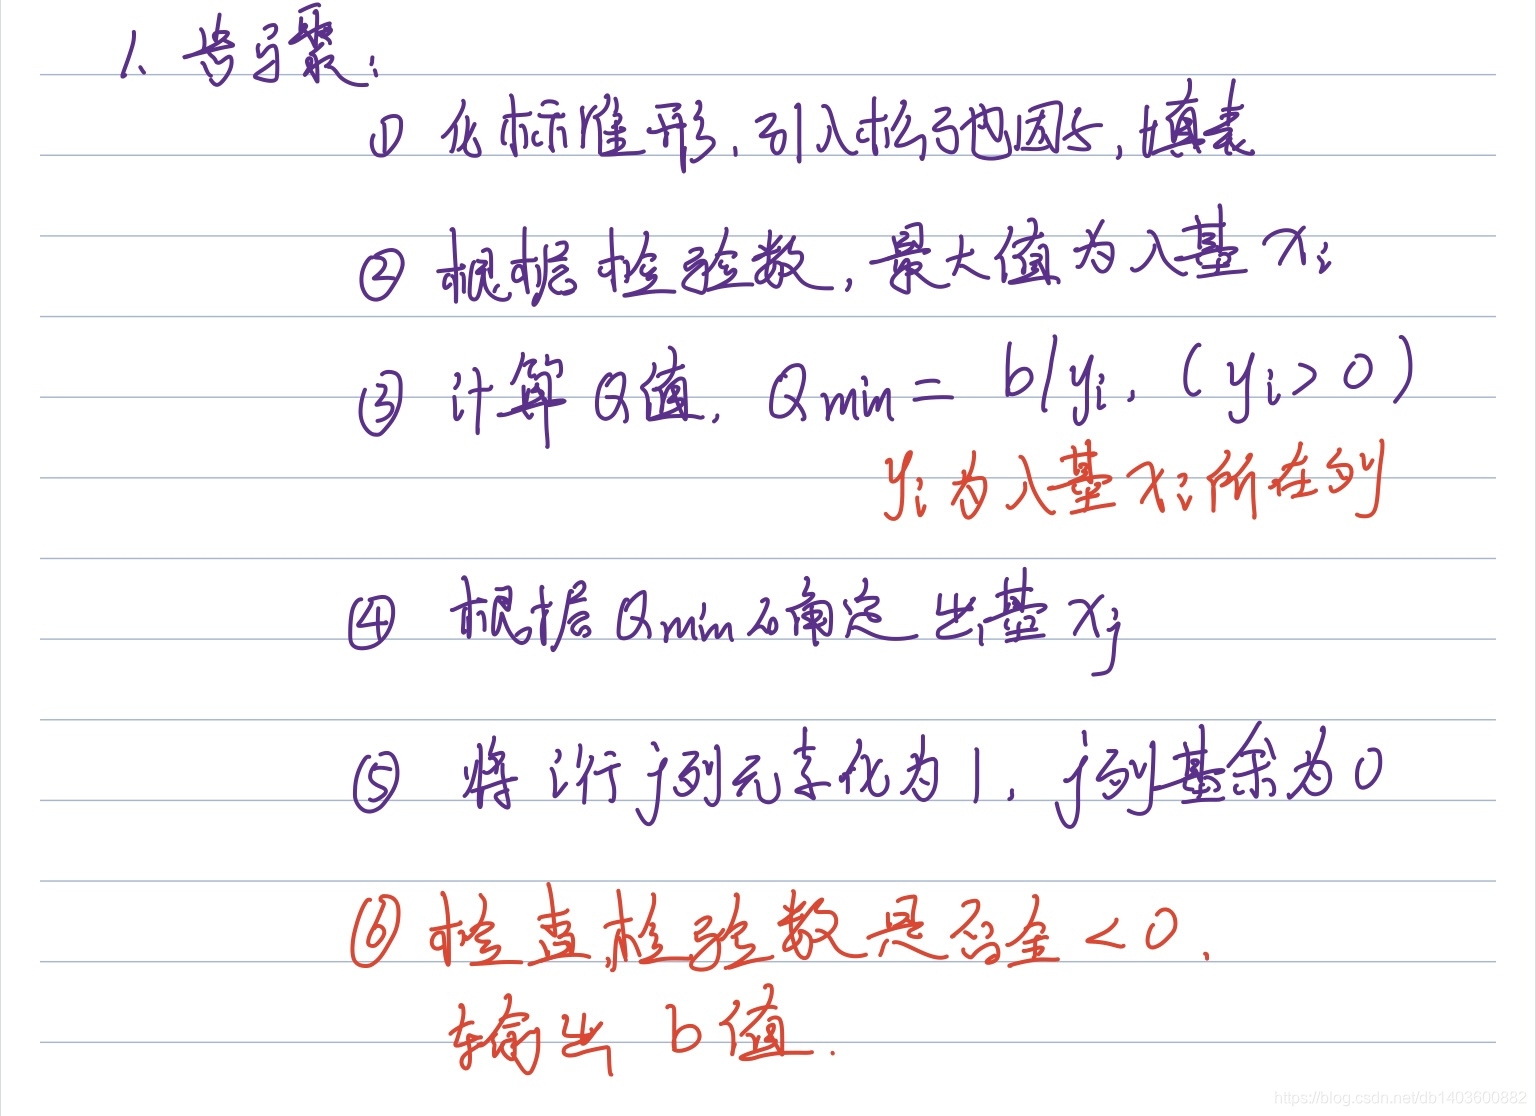 1. 步骤:
① 化标准形,引入松弛因子,填表
② 根据检验数,最大值为入基 xi
③ 计算Q值, Qmin = b/yi, (yi>0)
yi为入基xi所在列
④ 根据Qmin确定出基xj
⑤ 将i行j列元素化为1, j列其余为0
⑥ 检查检验数是否全<0.
输出b值.
https://blog.csdn.net/db1403600882